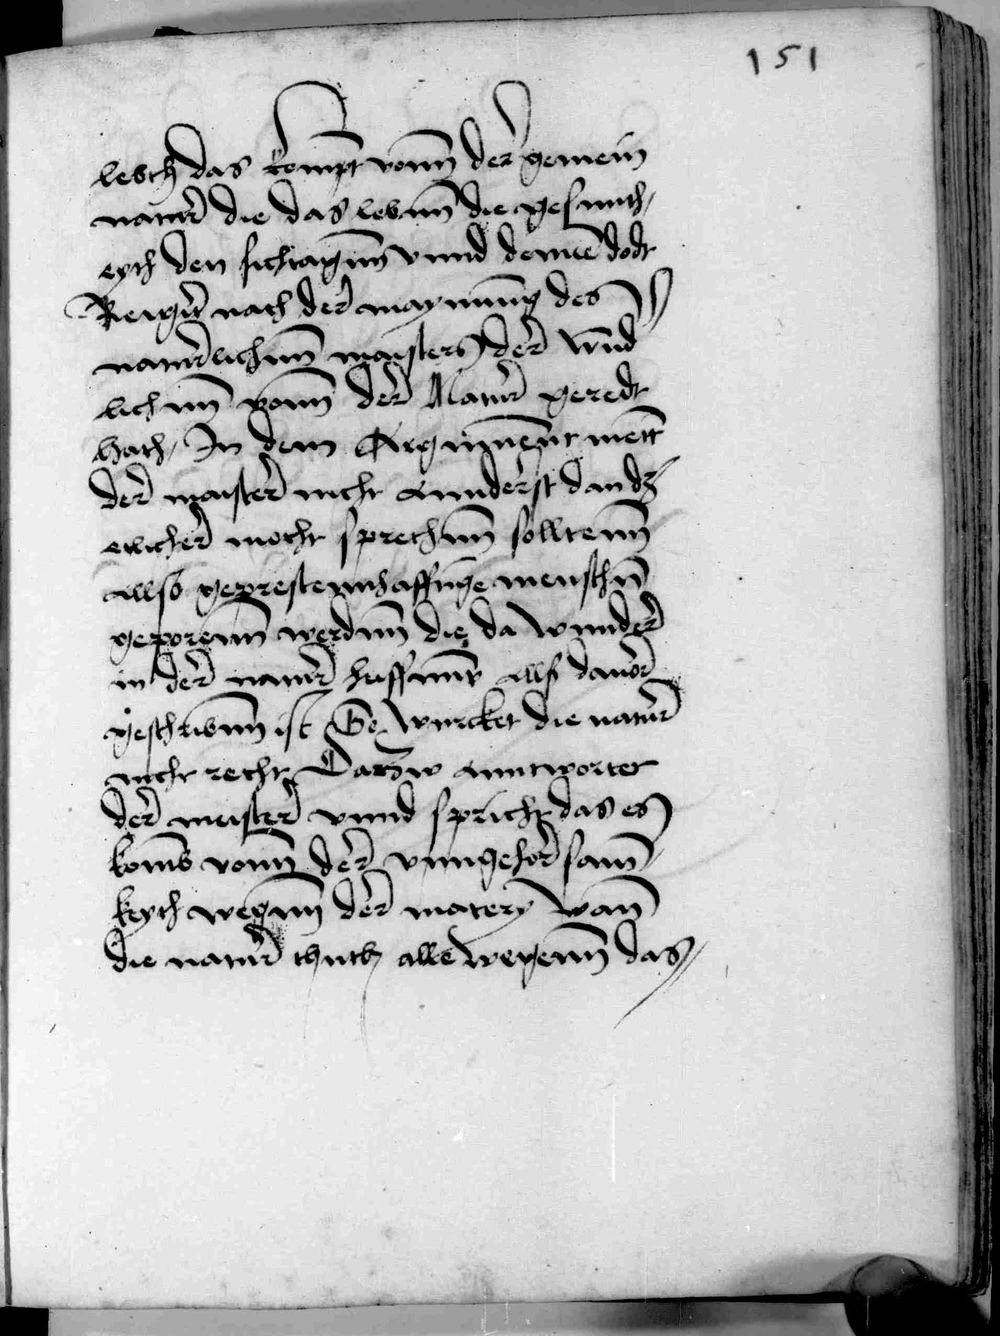 151
lebth das kompt vonn der gemein
natur die das lebenn die gesunth„
eyth den sichtagenn vnnd denne dodt
Reigirt nach der maynung des
naturlichenn maisters der
lichenn vonn der Natur geredt
hath. In dem Argument mett
der maister nicht annderst dan dz
etlicher mocht sprechenn solltenn
allso geprestennhafftige menschenn
geporenn werdenn die da wunder
in der natur hiessenn alls dauor
geschribenn ist So wurcket die natur
nicht recht Darzw anntwortet
der meister vnnd spricht das es
komb vonn der vnngehorsam„
keyth wegenn der matery Wann
die natur thuth alle wegenn das